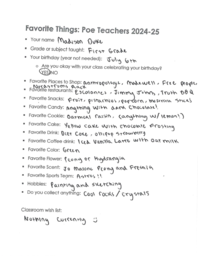 Favorite Things: Poe Teachers 2024-25
• Your name: Madison Duke
• Grade or subject taught: First Grade
• Your birthday (year not needed): July 6th
• Are you okay with your class celebrating your birthday?
YES/NO
• Favorite Places to Shop: Anthropologie, Madewell, Free people,
Nordstrom's Rack
• Favorite Restaurants: Jimmy Johns, Truth BBQ
• Favorite Snacks: Fruit, pistachios, popcorn,
• Favorite Candy: Anything with dark chocolate
• Favorite Cookie: Oatmeal raisin, (anything w/ lemon!)
• Favorite Cake: Yellow cake with chocolate frosting
• Favorite Drink: Diet Coke,
• Favorite Coffee drink: Iced Vanilla Latte with oat milk
• Favorite Color: Green
• Favorite Flower: Peony or Hydrangea
• Favorite Scent: Jo Malone Peony and
• Favorite Sports Team: Astros!!
• Hobbies: Painting and exercising
• Do you collect anything: Cool rocks / crystals
Classroom wish list:
Nothing currently :)